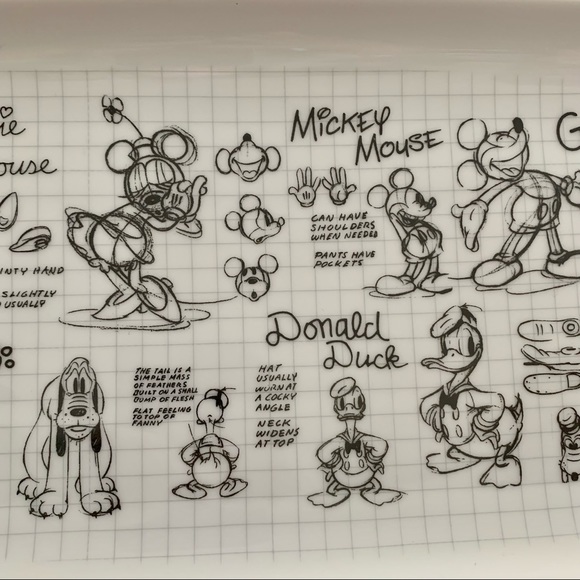 Mickey
Mouse
ouse
CAN HAVE
SHOULDERS
WHEN NEEDED
PANTS HAVE
POCKETS
INTY HAND
SLIGHTLY
USUALLY
Donald
Duck
THE TAIL IS A
SIMPLE MASS
OF FEATHERS
BUILT ON A SMALL
BUMP OF FLESH
FLAT FEELING
TO TOP OF
FANNY
HAT
USUALLY
WORN AT
A COCKY
ANGLE
NECK
WIDENS
AT TOP